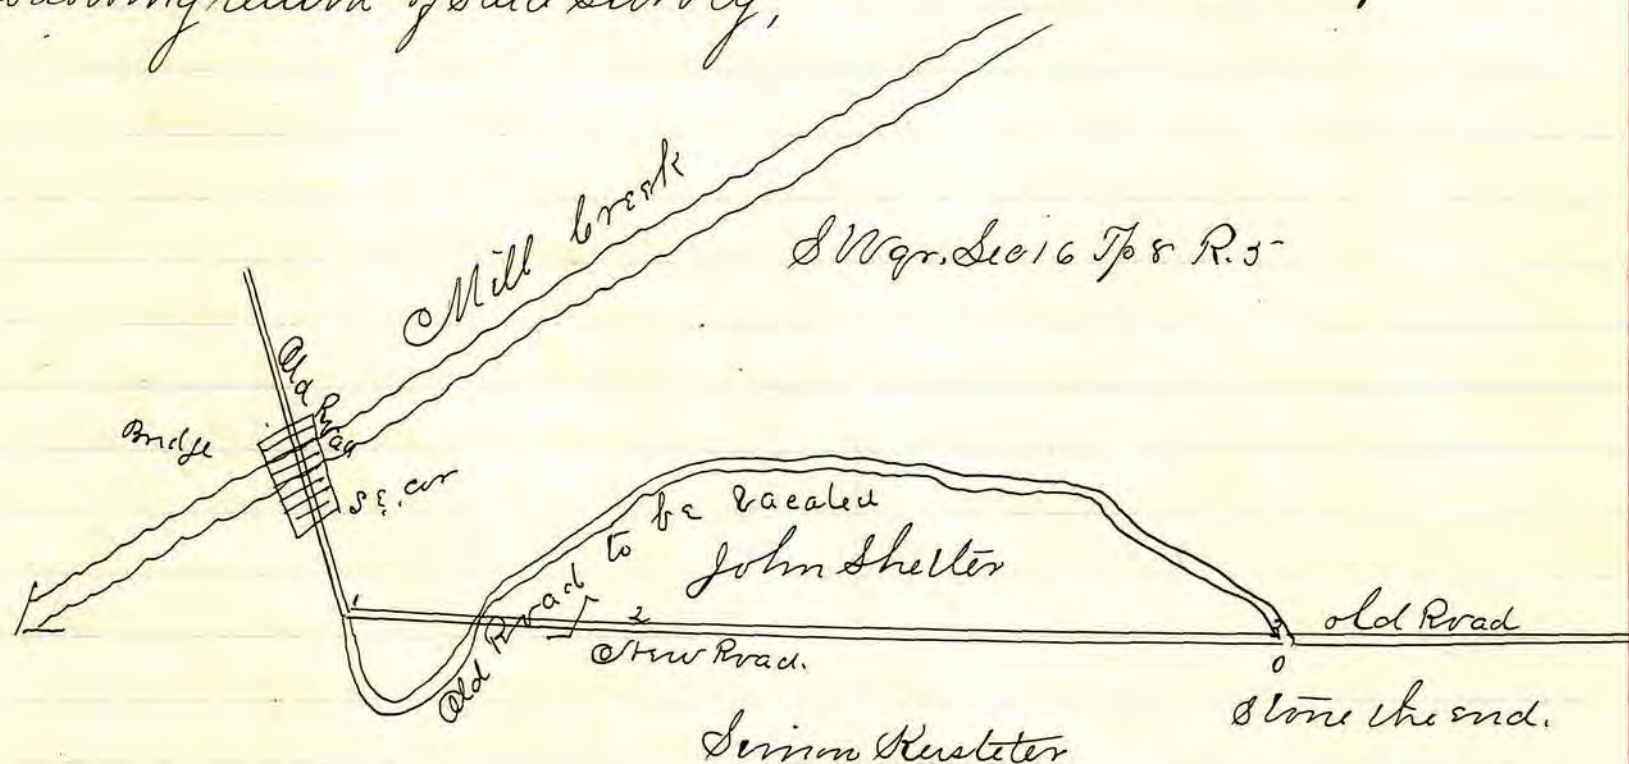 return of said survey,
Mill Creek
S W qr. Sec 16 Tp 8 R. 5
Old Road
Bridge
S E. cor
Old Road to be vacated
John Shetter
1
2
3
old Road
New Road.
0
Stone the end.
Simon Kersteter